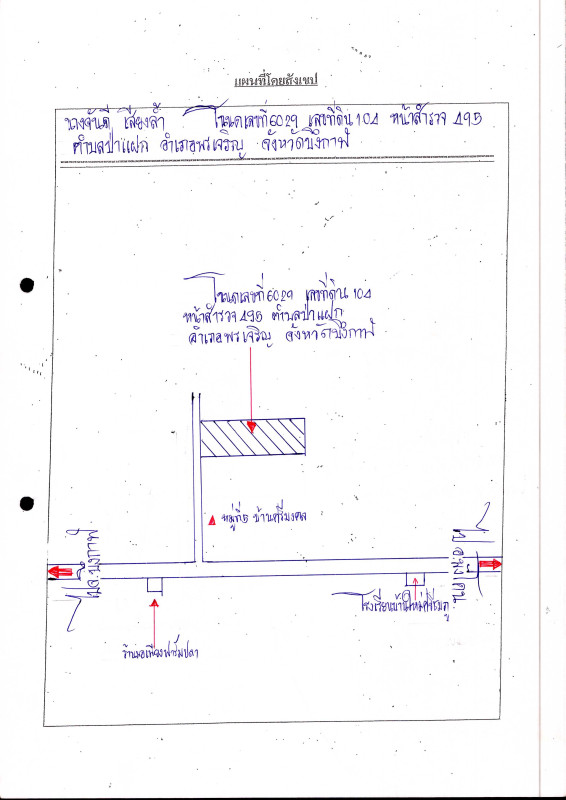 แผนที่โดยสังเขป
นางจันดี เสียงล้ำ โฉนดเลขที่ 6029 เลขที่ดิน 104 หน้าสำรวจ 495
ตำบลป่าแฝก อำเภอพรเจริญ จังหวัดบึงกาฬ
โฉนดเลขที่ 6029 เลขที่ดิน 104
หน้าสำรวจ 495 ตำบลป่าแฝก
อำเภอพรเจริญ จังหวัดบึงกาฬ
หมู่ที่5 บ้านศรีมงคล
ไป จ.บึงกาฬ
ไป
โรงเรียนบ้าน
ร้านพอเพียงฟาร์มปลา